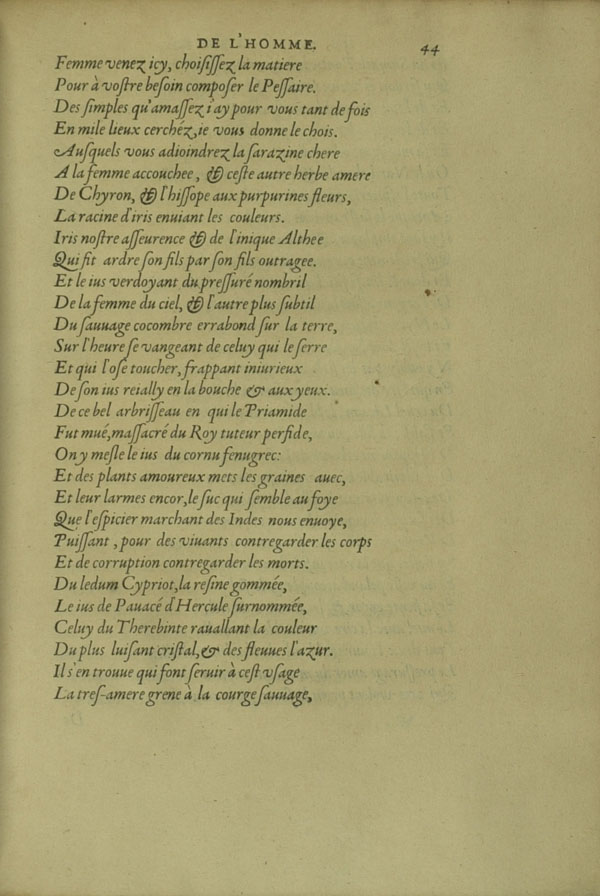 DE L'HOMME. 44
Femme venez icy, choisissez la matiere
Pour à vostre besoin composer le Pessaire.
Des simples qu'amassez i'ay pour vous tant de fois
En mile lieux cerchéz, ie vous donne le chois.
Ausquels vous adioindrez la sarazine chere
A la femme accouchee, & ceste autre herbe amere
De Chyron, & l'hissope aux purpurines fleurs,
La racine d'iris enuiant les couleurs.
Iris nostre asseurence & de l'inique Althee
Qui fit ardre son fils par son fils outragee.
Et le ius verdoyant du pressuré nombril
De la femme du ciel, & l'autre plus subtil
Du sauuage cocombre errabond sur la terre,
Sur l'heure se vangeant de celuy qui le serre
Et qui l'ose toucher, frappant iniurieux
De son ius reially en la bouche & aux yeux.
De ce bel arbrisseau en qui le Priamide
Fut mué, massacré du Roy tuteur perfide,
On y mesle le ius du cornu fenugrec:
Et des plants amoureux mets les graines auec,
Et leur larmes encor, le suc qui semble au foye
Que l'espicier marchant des Indes nous enuoye,
Puissant, pour des viuants contregarder les corps
Et de corruption contregarder les morts.
Du ledum Cypriot, la resine gommée,
Le ius de Pauacé d'Hercule surnommée,
Celuy du Therebinte rauallant la couleur
Du plus luisant cristal, & des fleuues l'azur.
Il s'en trouue qui font seruir à cest vsage
La tres-amere grene à la courge sauuage,